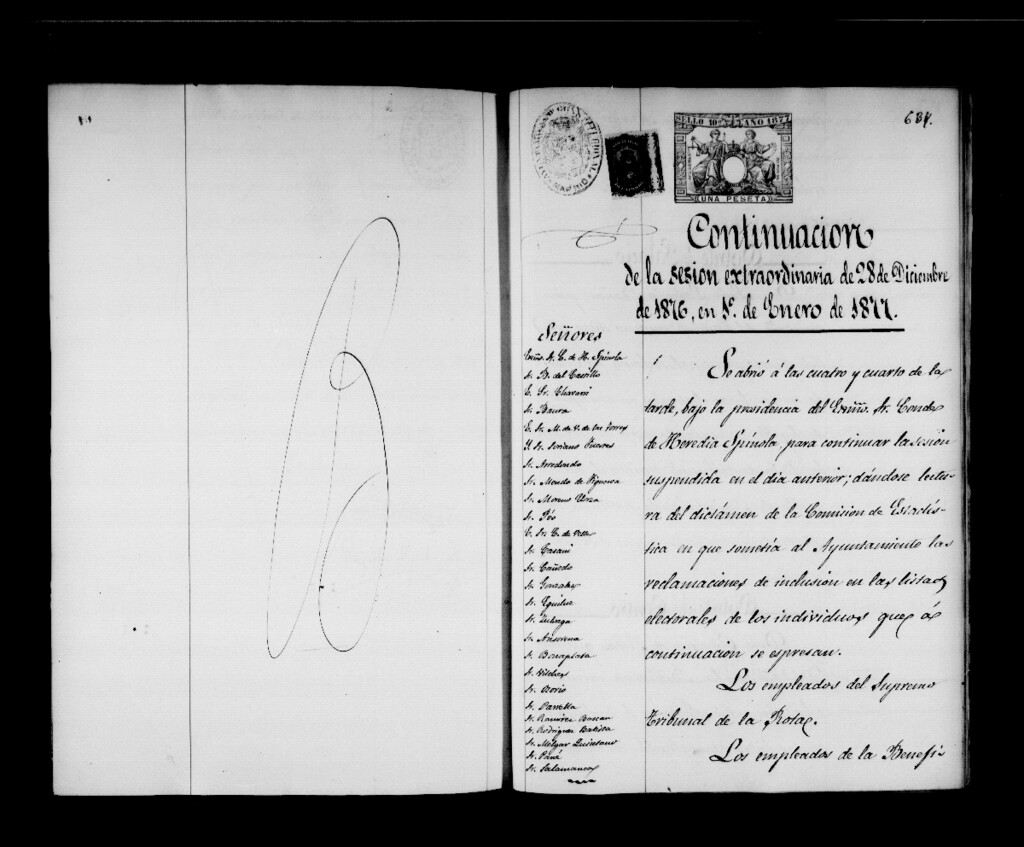 634.
SELLO 10º AÑO 1877
UNA PESETA
Continuacion
de la sesion extraordinaria de 28 de Diciembre
de 1876, en 1º. de Enero de 1877.
Señores
Exmo. Sr. C. de H. Spínola
Sr. B. del Castillo
E. Sr. Chavarri
Sr. Baura
E. Sr. M. de V. de las Torres
Y. Sr. Soriano
Sr. Arredondo
Sr. Mondo de Figueroa
Sr. Moreno
Sr.
E. Sr. C. de Vella
Sr. Casani
Sr. Cañedo
Sr. Gonzalez
Sr. Eguiluz
Sr. Zuloaga
Sr. Ansorena
Sr. Bonaplata
Sr. Vilches
Sr. Borio
Sr. Parrella
Sr. Ramirez Bascan
Sr. Rodriguez Batista
Sr. Melgar Quintano
Sr. Pané
Sr. Salamanca
Se abrió á las cuatro y cuarto de la
tarde, bajo la presidencia del Exmo. Sr. Conde
de Heredia Spínola, para continuar la sesion
suspendida en el dia anterior; dándose lectu-
ra del dictámen de la Comision de Estadís-
tica en que sometía al Ayuntamiento las
reclamaciones de inclusion en las listas
electorales de los individuos que á
continuacion se espresan.
Los empleados del Supremo
Tribunal de la Rota.
Los empleados de la Benefi-